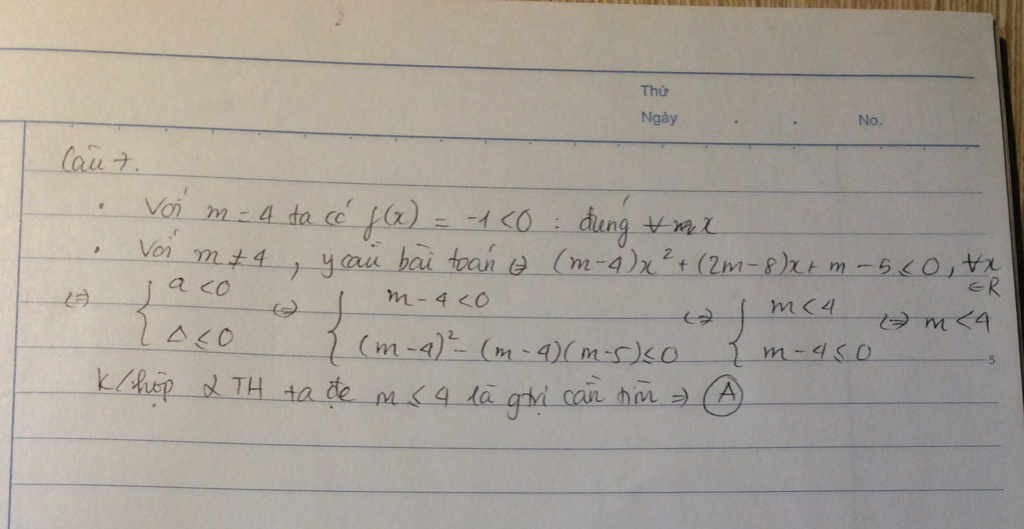 Thứ
Ngày . . No.
Câu 7.
• Với m = 4 ta có f(x) = -1 < 0 : đúng ∀ x
• Với m ≠ 4 , ycầu bài toán ⇔ (m-4)x² + (2m-8)x + m - 5 ≤ 0, ∀x ∈ R
⇔ { a < 0 ⇔ { m - 4 < 0 ⇔ { m < 4 ⇔ m < 4
Δ ≤ 0 (m-4)² - (m-4)(m-5) ≤ 0 m - 4 ≤ 0
5
K/hợp 2 TH ta đc m ≤ 4 là gtrị cần tìm ⇒ A